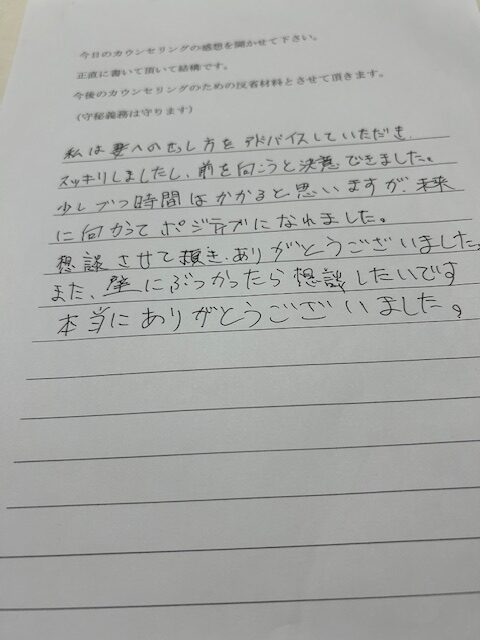 今日のカウンセリングの感想を聞かせて下さい。
正直に書いて頂いて結構です。
今後のカウンセリングのための反省材料とさせて頂きます。
(守秘義務は守ります)
私は妻への し方を アドバイスしていただき
スッキリしましたし、前を向こうと決意できました。
少しづつ時間はかかると思いますが、未来
に向かってポジティブになれました。
想談させて頂き、ありがとうございました。
また、壁にぶつかったら想談したいです
本当にありがとうございました。